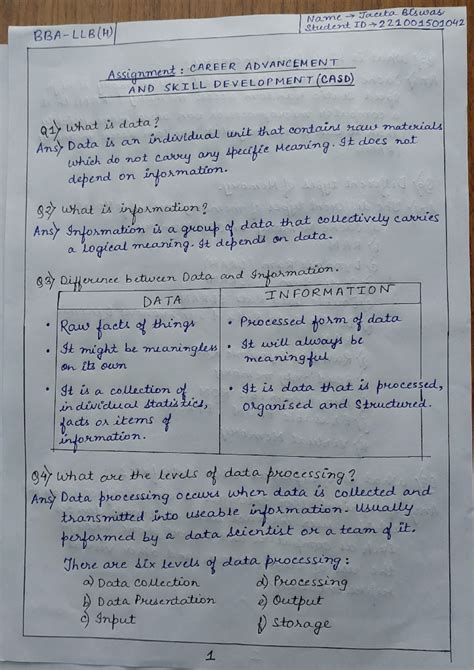 BBA-LLB(H)
Name → Jacita Biswas
Student ID → 221001501042
Assignment: CAREER ADVANCEMENT
AND SKILL DEVELOPMENT (CASD)
Q1) What is data?
Ans) Data is an individual unit that contains raw materials
which do not carry any specific meaning. It does not
depend on information.
Q2) What is information?
Ans) Information is a group of data that collectively carries
a logical meaning. It depends on data.
Q3) Difference between Data and Information.
DATA
• Raw facts of things
• It might be meaningless
on its own
• It is a collection of
individual statistics,
facts or items of
information.
INFORMATION
• Processed form of data
• It will always be
meaningful
• It is data that is processed,
organised and structured.
Q4) What are the levels of data processing?
Ans) Data processing occurs when data is collected and
transmitted into useable information. Usually
performed by a data scientist or a team of it.
There are six levels of data processing:
a) Data collection
b) Data Presentation
c) Input
d) Processing
e) Output
f) Storage
1